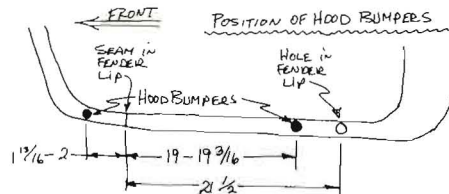 FRONT
POSITION OF HOOD BUMPERS
SEAM IN
FENDER
LIP
HOLE IN
FENDER
LIP
HOOD BUMPERS
1 13/16 - 2
19 - 19 3/16
21 1/2